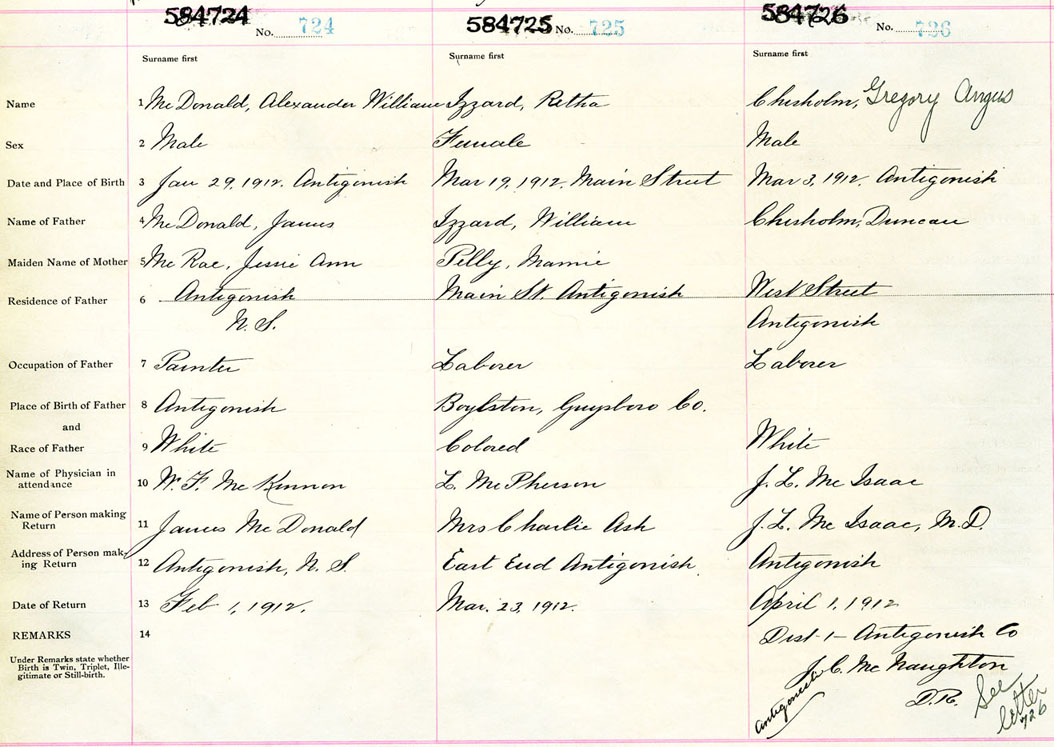 584724 No. 724 584725 No. 725 584726 No. 726
Surname first Surname first Surname first
Name 1 McDonald, Alexander William Izzard, Retha Chisholm, Gregory Angus
Sex 2 Male Female Male
Date and Place of Birth 3 Jan 29, 1912. Antigonish Mar 19, 1912, Main Street Mar 3, 1912. Antigonish
Name of Father 4 McDonald, James Izzard, William Chisholm, Duncan
Maiden Name of Mother 5 McRae, Jessie Ann Pelly, Mamie
Residence of Father 6 Antigonish Main St. Antigonish West Street
N. S. Antigonish
Occupation of Father 7 Painter Laborer Laborer
Place of Birth of Father 8 Antigonish Boylston, Guysboro Co.
and
Race of Father 9 White Colored White
Name of Physician in
attendance 10 W. F. McKinnon L. McPherson J. L. McIsaac
Name of Person making
Return 11 James McDonald Mrs Charlie Ash J. L. McIsaac, M.D.
Address of Person mak-
ing Return 12 Antigonish, N. S. East End Antigonish Antigonish
Date of Return 13 Feb 1, 1912. Mar. 23, 1912. April 1, 1912
REMARKS 14 Dist 1 - Antigonish Co
Under Remarks state whether
Birth is Twin, Triplet, Ille-
gitimate or Still-birth.
J. C. McNaughton
Antigonish D.R. See
letter
726